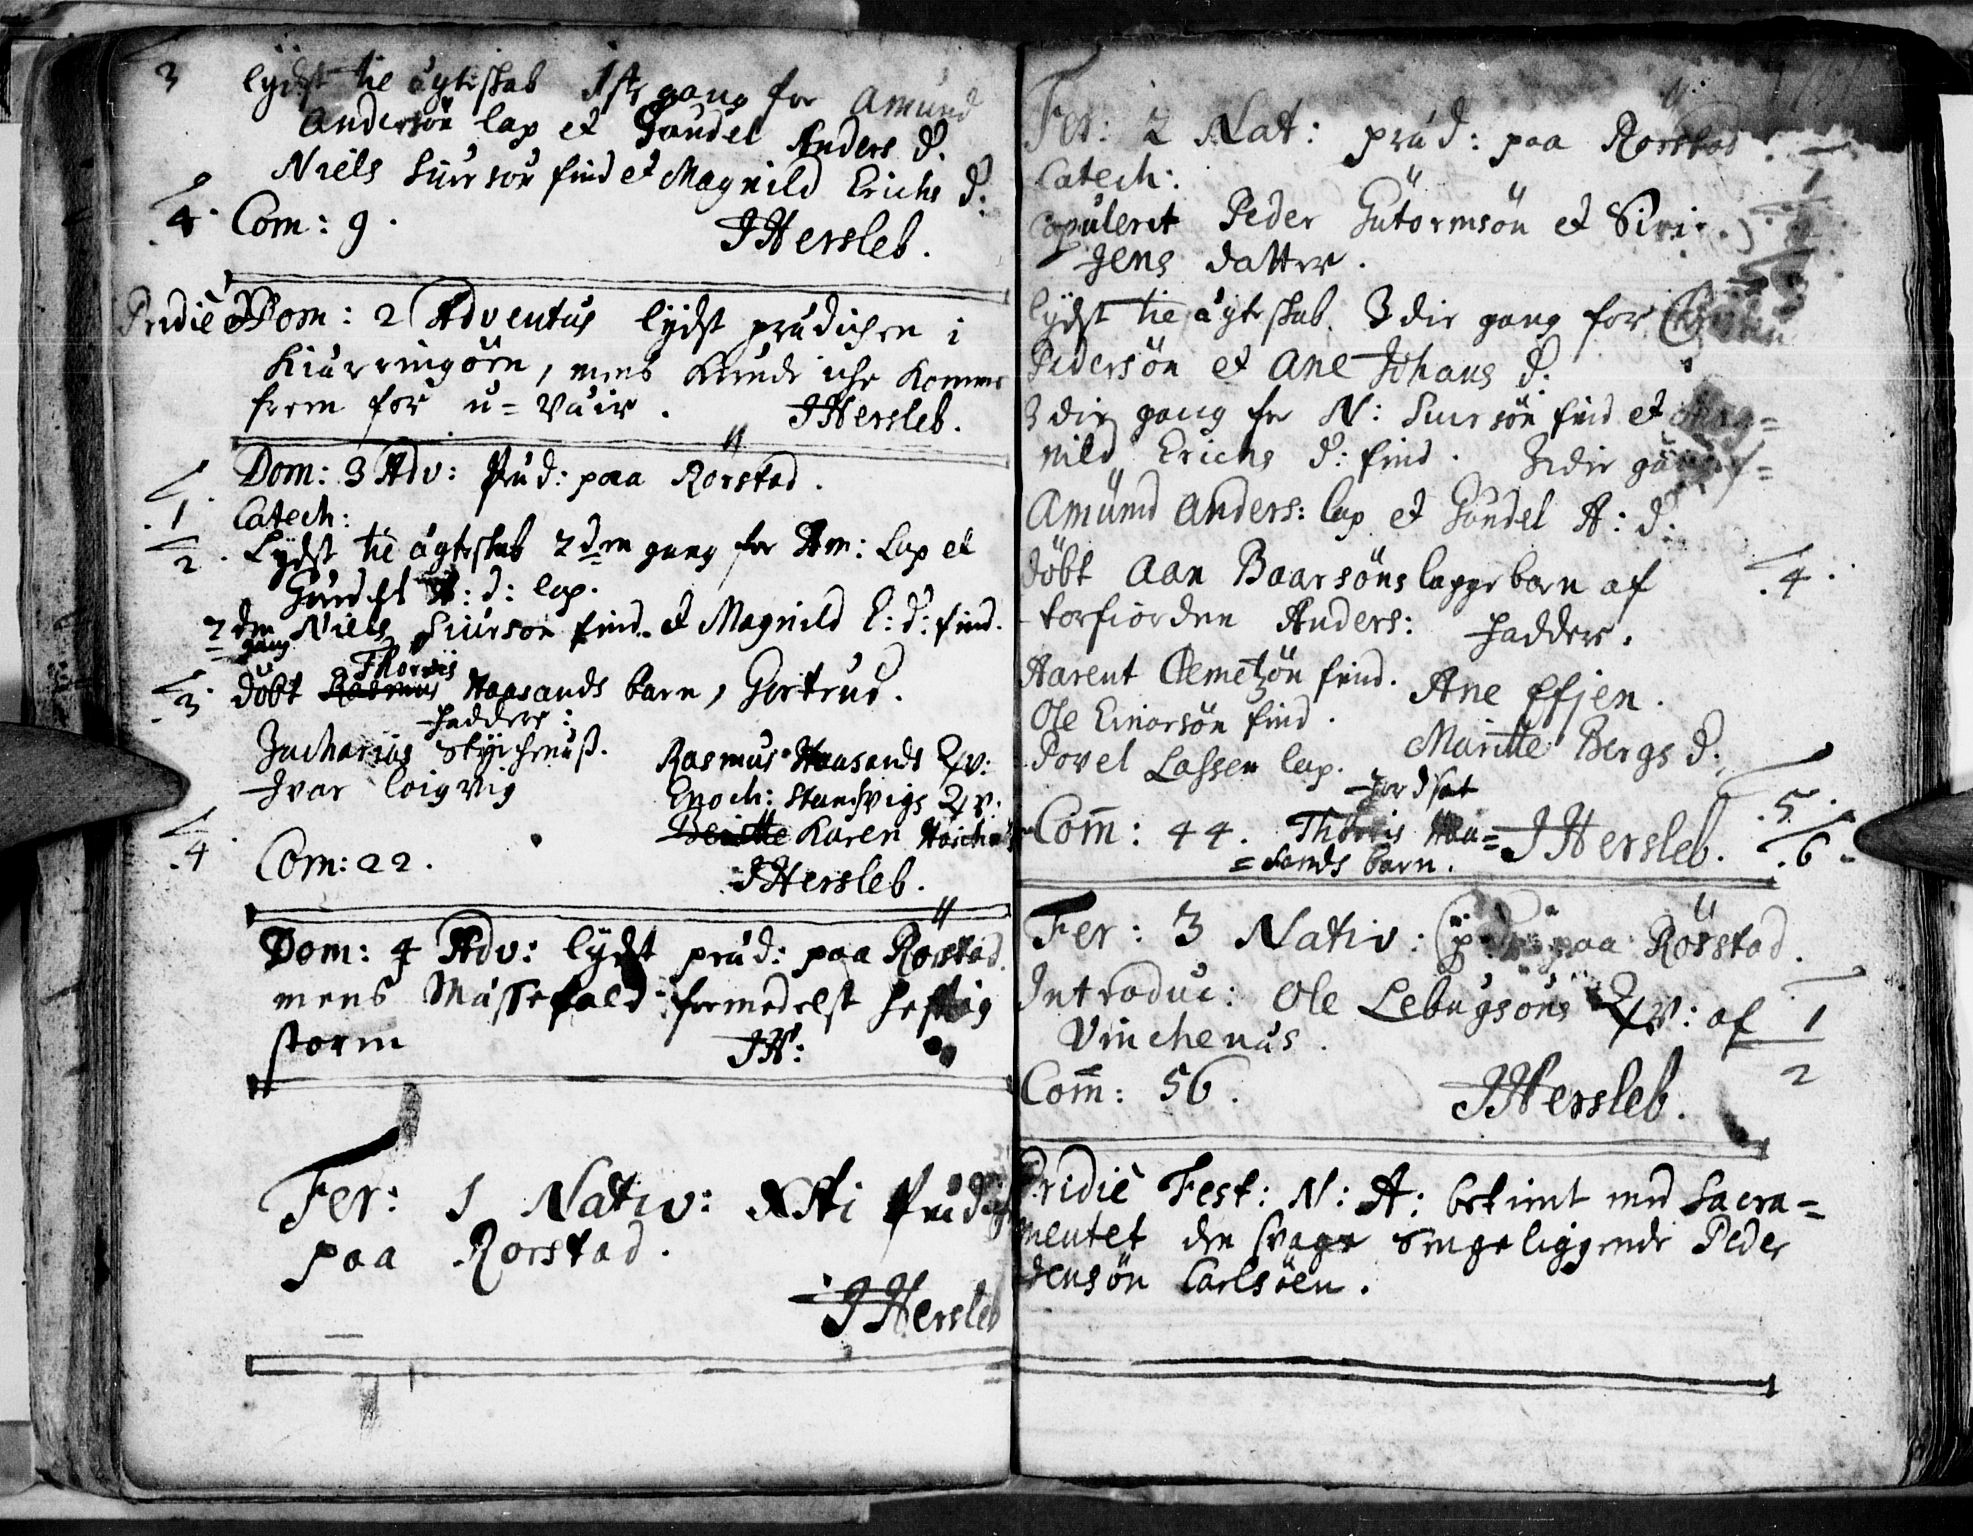 3 lydst til ägteskab 1ste gang for Amund
Andersön lap et Gundel Anders D.
Niels Siursön find et Magnild Erichs D:
4. Com: 9. JHersleb.
Pridie Dom: 2 Adventus lydst prædichen i
Kiærringöen, mens kunde iche komme
frem for u=vær. JHersleb.
Dom: 3 Adv: Præd: paa Rörstad.
1 Catech:
2. Lydst til ägteskab 2den gang for Am: Lap et
Gundel A: D: lap.
2den gang Niels Siursön find et Magnild E: D: find.
3. döbt Rasmus Thorris Haasands barn, Gertrud.
Fadder:
Zacharias
Rasmus Haasands Qv:
Ivar Loigvig
Enoch: Standsvigs Qv.
Beritte Karen
4. Com: 22.
JHersleb.
Dom: 4 Adv: lydst præd: paa Rörstad.
mens Messefald formedelst heftig
storm JH:
Fer: 1 Nativ: Xsti Præd
paa Rorstad.
JHersleb
Fer: 2 Nat: præd: paa Rorstad.
Catech: 1
Copuleret Peder Gutormsön et Siri
Jens datter.
lydst til ägteskab 3die gang for
Pedersön et Ane Johans D.
3die gang for N: Siursön find et Mag=
nild Erichs D: find. 3die gang f=
Amund Anders: lap et Gundel A: D:
döbt Aan Baarsöns lappe barn af 4.
torfiorden Anders: Fadder.
Aarent Clemetzön find. Ane
Ole Einarsön find.
Maritte Bergs D:
Povel Lassen lap.
Jordsat
Comm: 44. Thorris Haa= JHersleb. 5. 6.
=sands barn.
Fer: 3 Nativ: præd: paa Rörstad.
Introduc: Ole Qv: af 1
Vinchenæs. 2
Comm: 56. JHersleb.
Pridie Fest: N: A: betient med Sacra=
mentet den svage sengeliggende Peder
Jensön Carlsöen.